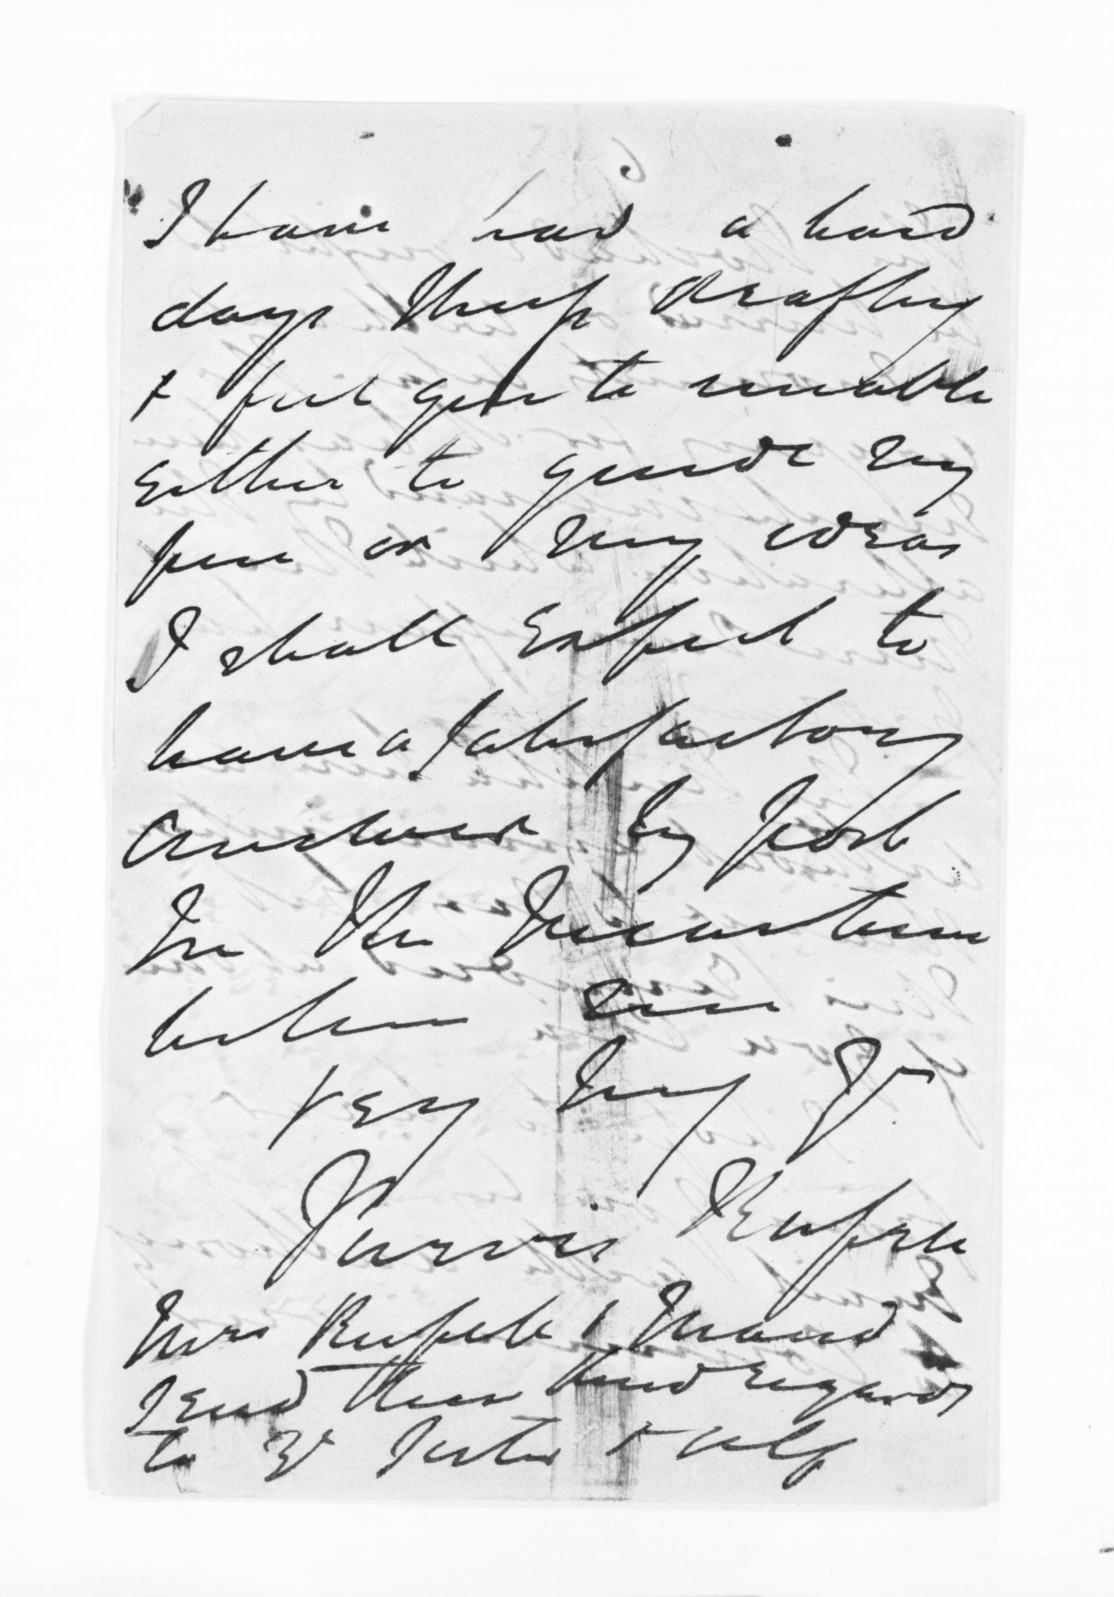 I have had a hard
days Sheep Drafting
& feel quite unable
Either to guide my
pen or my ideas
I shall Expect to
have a Satisfactory
answer by post
In the Meantime
believe me
very truly Yr
Purvis Russell
Mrs Russell & Maud
Send their kind regards
to yr Sister & self